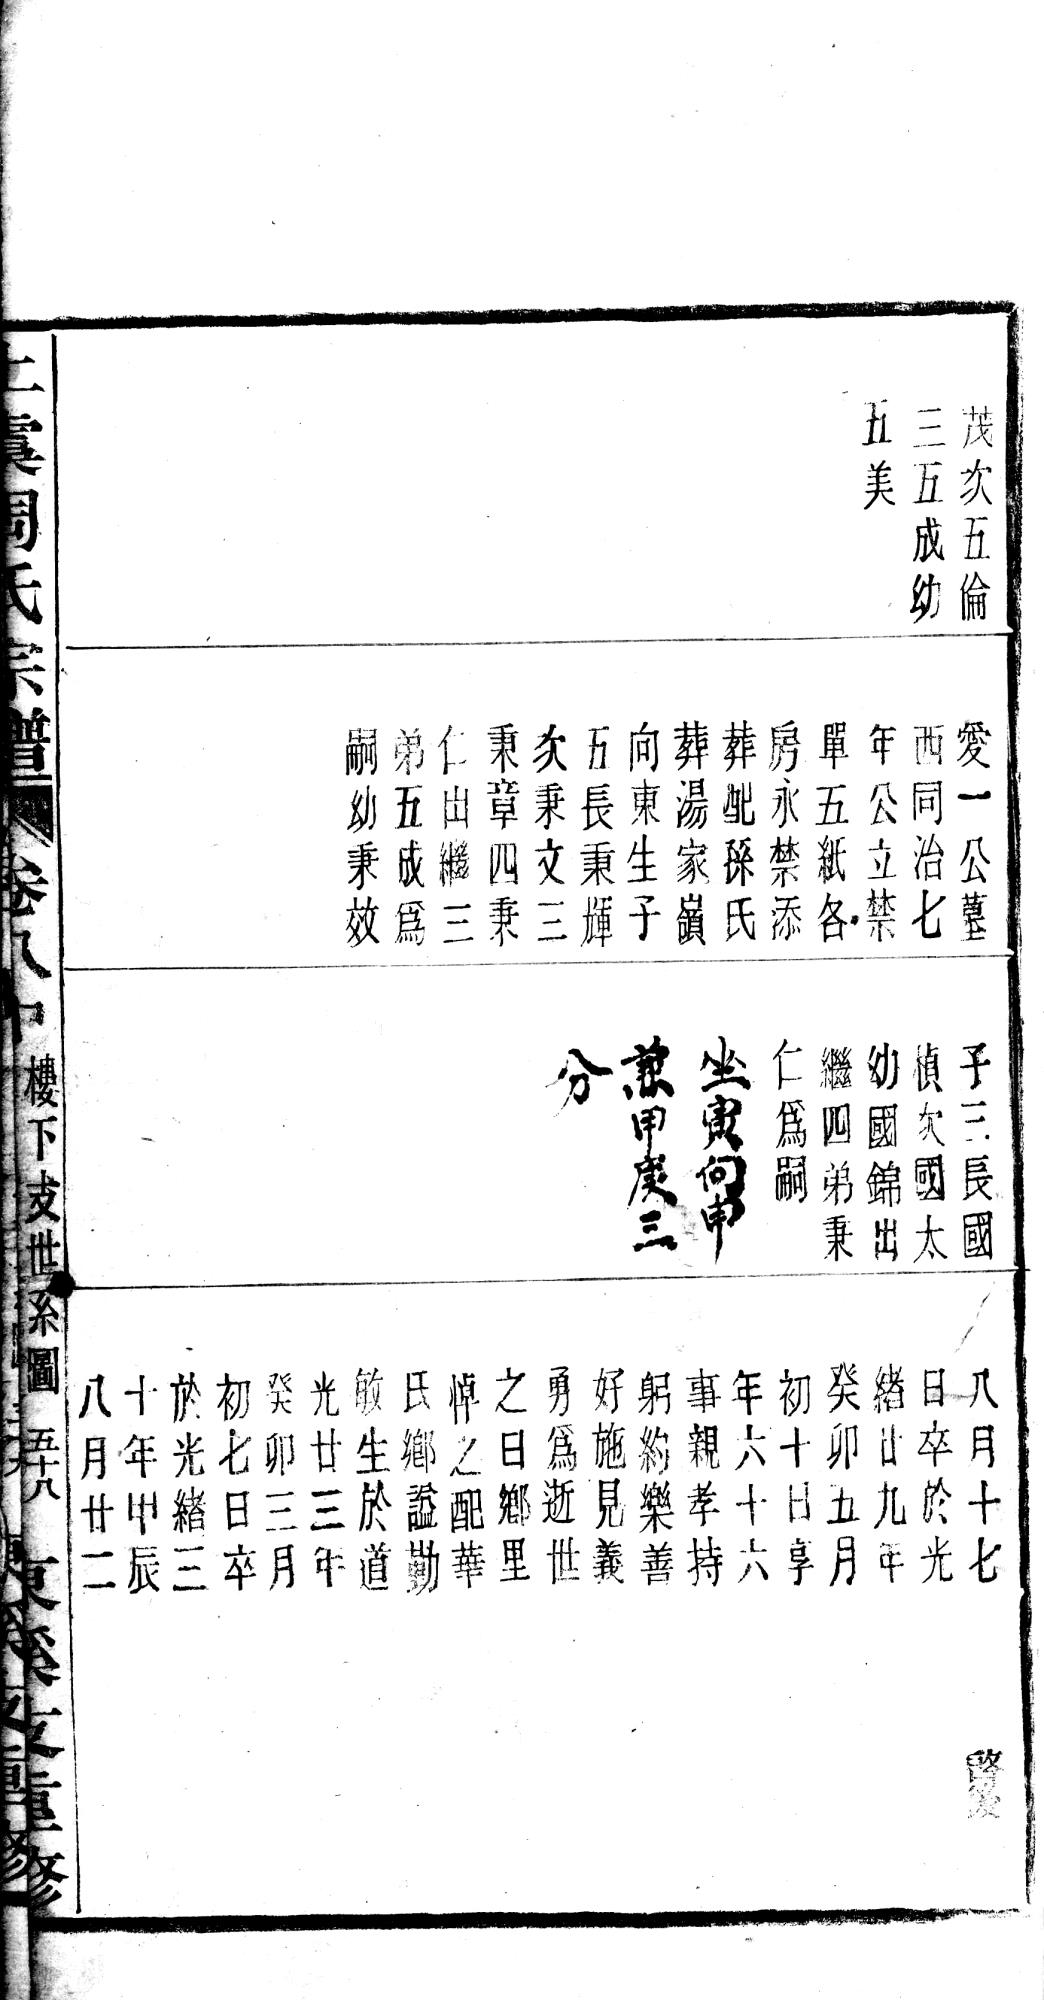 茂次五倫
三五成幼
五美
愛一公墓
西同治七
年公立禁
單五紙各
房永禁添
葬配孫氏
葬湯家嶺
向東生子
五長秉輝
次秉文三
秉章四秉
仁出繼三
弟五成爲
嗣幼秉效
子三長國
楨次國太
幼國錦出
繼四弟秉
仁爲嗣
坐寅向申
兼甲庚三
分
八月十七
日卒於光
緒廿九年
癸卯五月
初十日享
年六十六
事親孝持
躬約樂善
好施見義
勇爲逝世
之日鄉里
悼之配華
氏鄉謚勤
敏生於道
光廿三年
癸卯三月
初七日卒
於光緒三
十年甲辰
八月廿二
上虞周氏宗譜
卷八中
樓下支世系圖
五十八
東溪支重修